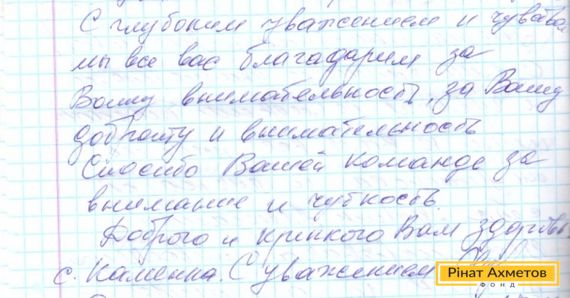 С глубоким уважением и чувства
мы все вас благадарим за
Вашу внимательность, за Вашу
доброту и внимательность
Спасибо Вашей команде за
внимание и чуткость.
Доброго и крипкого Вам здоровь
с. Каменка. С уважением
Рінат Ахметов
ФОНД